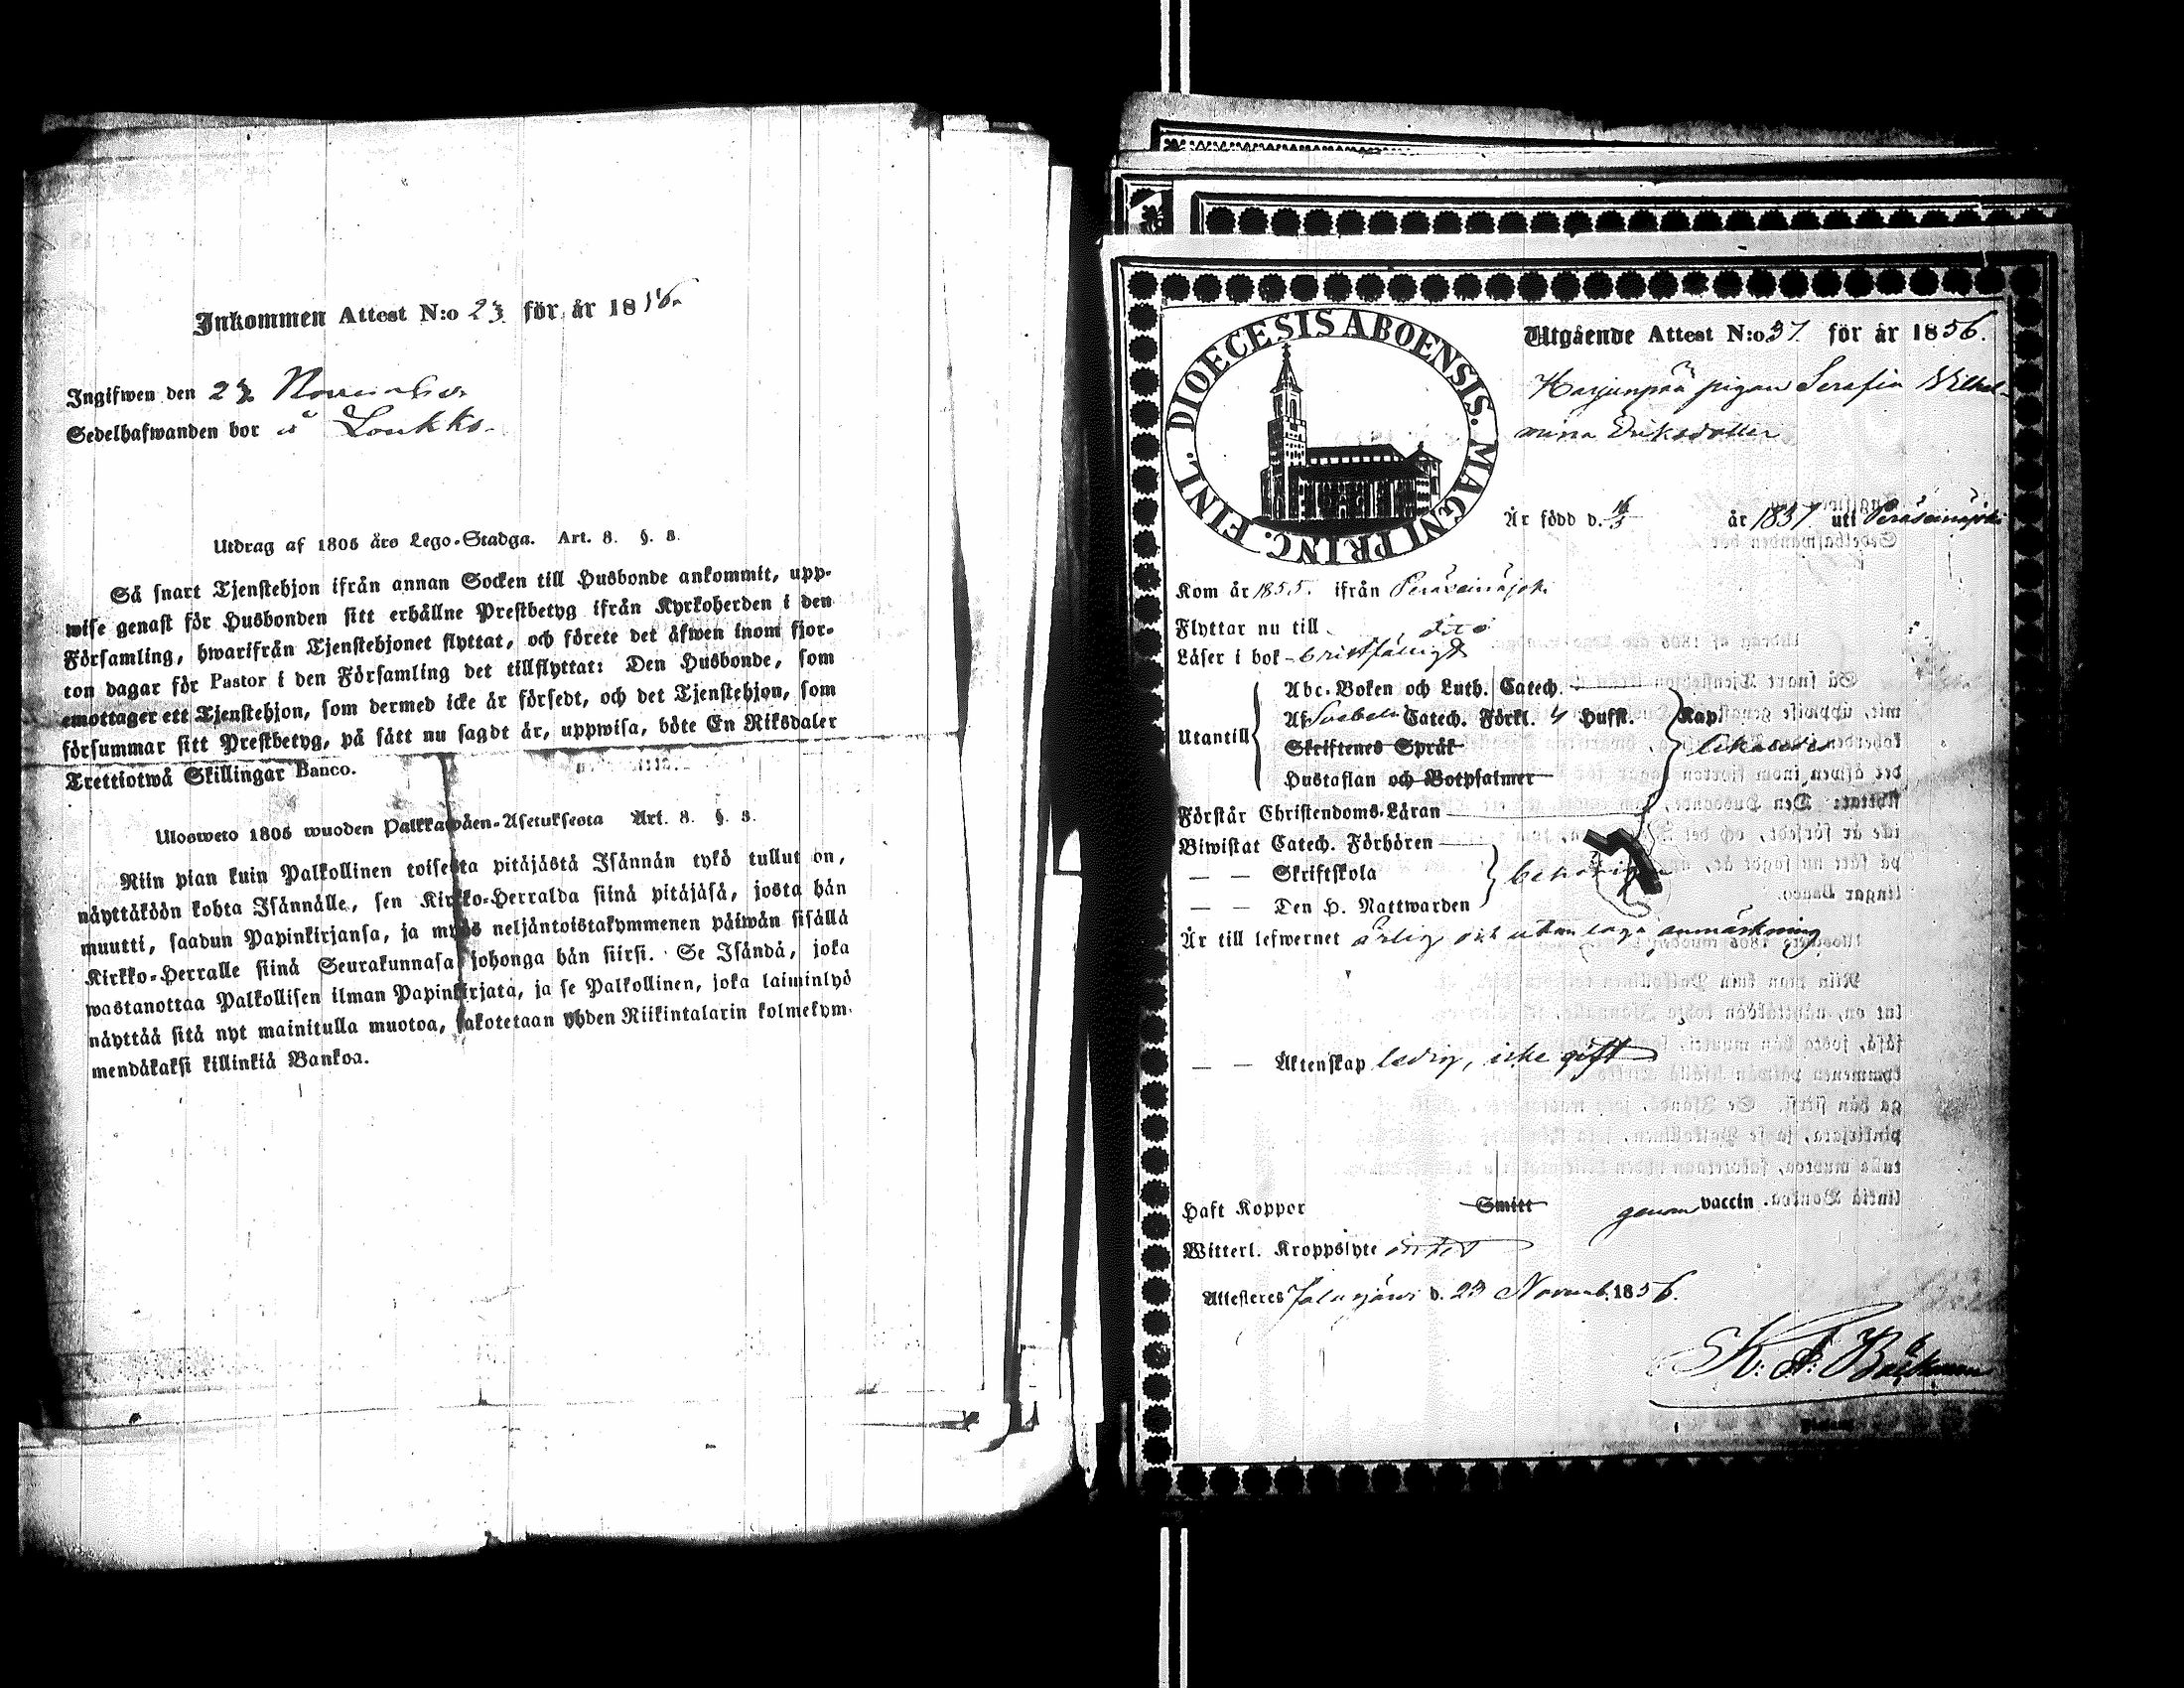 Inkommen Attest N:o 23 för år 1856.
Ingifwen den 23 November
Sedelhafwanden bor å Loukko.
Utdrag af 1805 års Lego-Stadga. Art. 8. §. 8.
Så snart Tjenstehjon ifrån annan Socken till Husbonde ankommit, upp-
wise genast för Husbonden sitt erhållne Prestbetyg ifrån Kyrkoherden i den
Församling, hwarifrån Tjenstehjonet flyttat, och förete det äfwen inom fjor-
ton dagar för Pastor i den Församling det tillflyttat: Den Husbonde, som
emottager ett Tjenstehjon, som dermed icke är försedt, och det Tjenstehjon, som
försummar sitt Prestbetyg, på sätt nu sagdt är, uppwisa, böte En Riksdaler
Trettiotwå Skillingar Banco.
Ulosweto 1805 wuoden Palkkawäen-Asetuksesta Art. 8. §. 8.
Niin pian kuin Palkollinen toisesta pitäjästä Isännän tykö tullut on,
näyttäköön kohta Isännälle, sen Kirkko-Herralda siinä pitäjäsä, josta hän
muutti, saadun Papinkirjansa, ja myös neljäntoistakymmenen päiwän sisällä
Kirkko-Herralle siinä Seurakunnasa johonga hän siirsi. Se Isändä, joka
wastanottaa Palkollisen ilman Papinkirjata, ja se Palkollinen, joka laiminlyö
näyttää sitä nyt mainitulla muotoa, sakotetaan yhden Riikintalarin kolmekym-
mendäkaksi killinkiä Bankoa.
DIOECESIS ABOENSIS. MAGNI PRINC. FINL.
Utgående Attest N:o 37 för år 1856.
Harjunpää pigan Serafia Wilhel-
mina Eriksdotter
Är född d. 16/3 år 1837 uti Peräseinäjoki
Kom år 1855. ifrån Peräseinäjoki
Flyttar nu till dito
Läser i bok bristfälligt
Abc-Boken och Luth. Catech.
Af Svebelii Catech. Förkl. 4 Hufst. Kap.
Utantill
Skriftenes Språk
Hustaflan och Botpsalmer
Förstår Christendoms-Läran
Biwistat Catech. Förhören
— — Skriftskola behörigen
— — Den H. Nattwarden
Är till lefwernet ärlig och utan laga anmärkning
— — Äktenskap ledig, icke gift
Haft Koppor Smitt genom vaccin.
Witterl. Kroppslyte intet
Attesteres Jalasjärvi d. 23 Novemb. 1856.
K. F. Bäckman